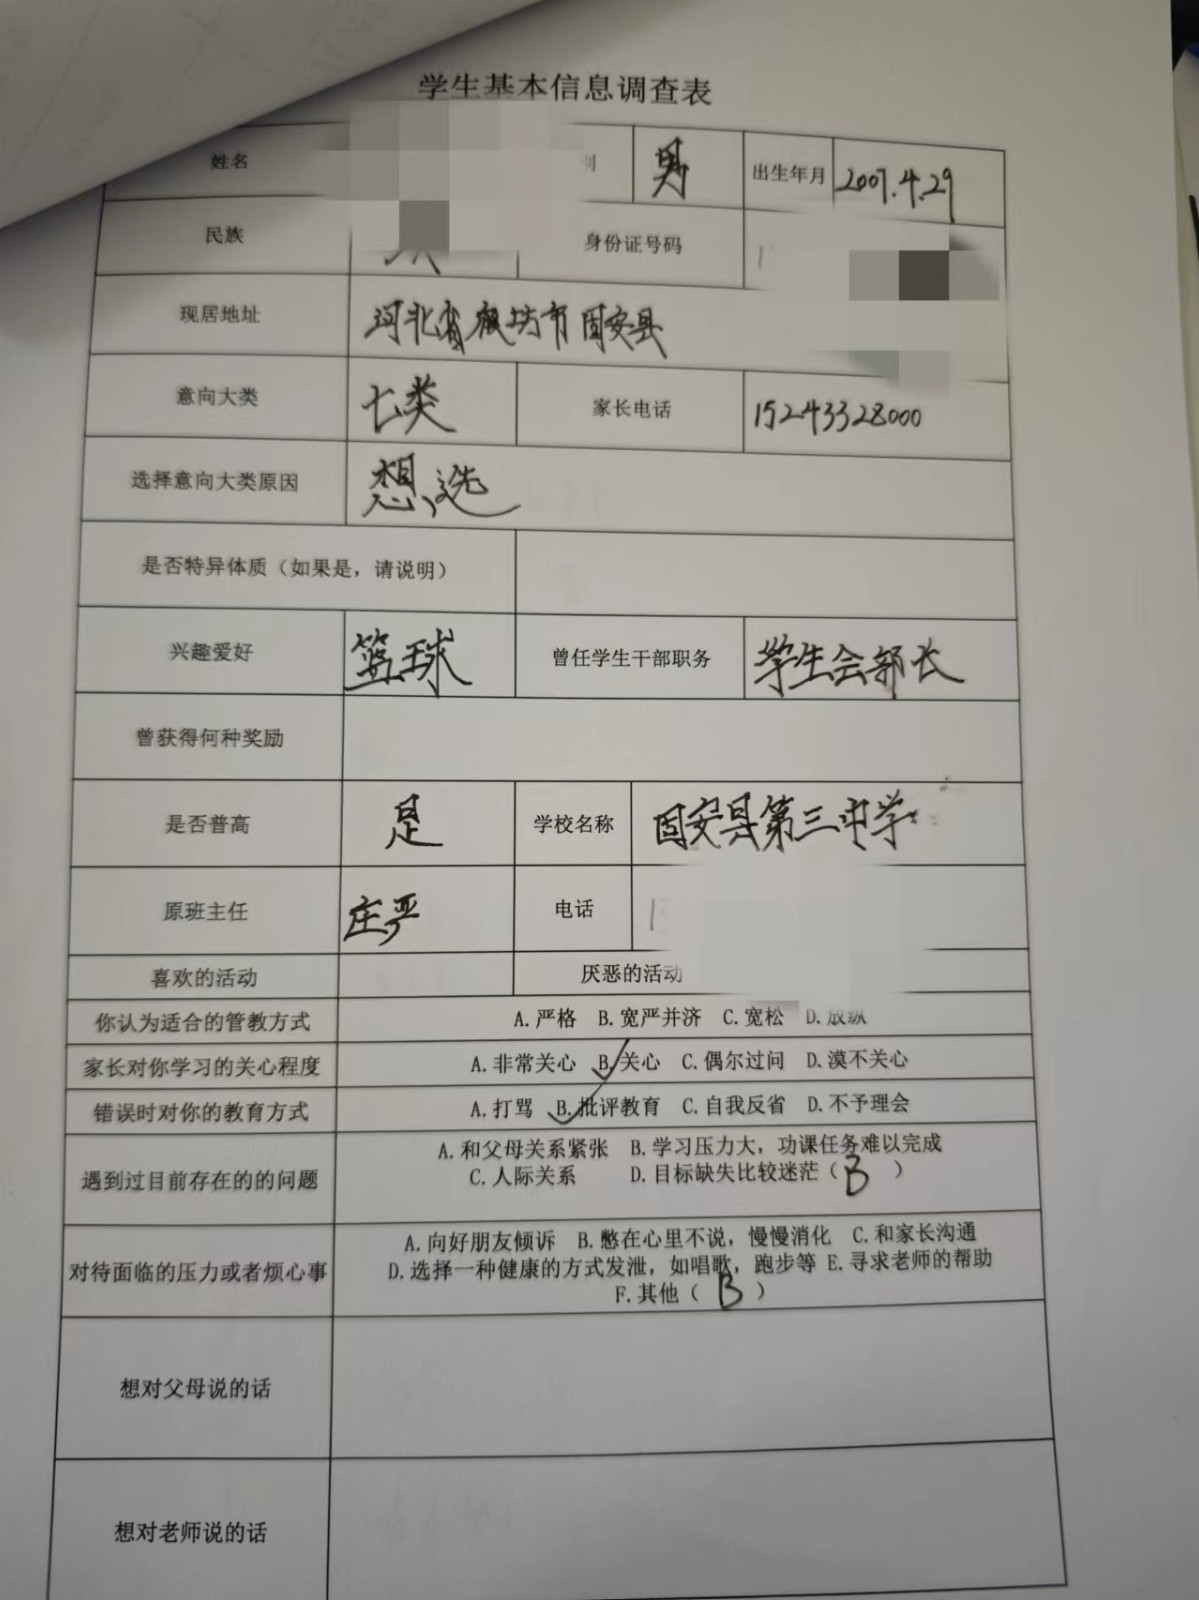 学生基本信息调查表
姓名 男 出生年月 2007.4.29
民族 身份证号码
现居地址 河北省廊坊市固安县
意向大类 七类 家长电话 15243328000
选择意向大类原因 想选
是否特异体质（如果是，请说明）
兴趣爱好 篮球 曾任学生干部职务 学生会部长
曾获得何种奖励
是否普高 是 学校名称 固安县第三中学
原班主任 庄严 电话
喜欢的活动 厌恶的活动
你认为适合的管教方式 A.严格 B.宽严并济 C.宽松 D.放纵
家长对你学习的关心程度 A.非常关心 B.关心 C.偶尔过问 D.漠不关心
错误时对你的教育方式 A.打骂 B.批评教育 C.自我反省 D.不予理会
遇到过目前存在的的问题 A.和父母关系紧张 B.学习压力大，功课任务难以完成
C.人际关系 D.目标缺失比较迷茫（B）
对待面临的压力或者烦心事 A.向好朋友倾诉 B.憋在心里不说，慢慢消化 C.和家长沟通
D.选择一种健康的方式发泄，如唱歌，跑步等 E.寻求老师的帮助
F.其他（B）
想对父母说的话
想对老师说的话